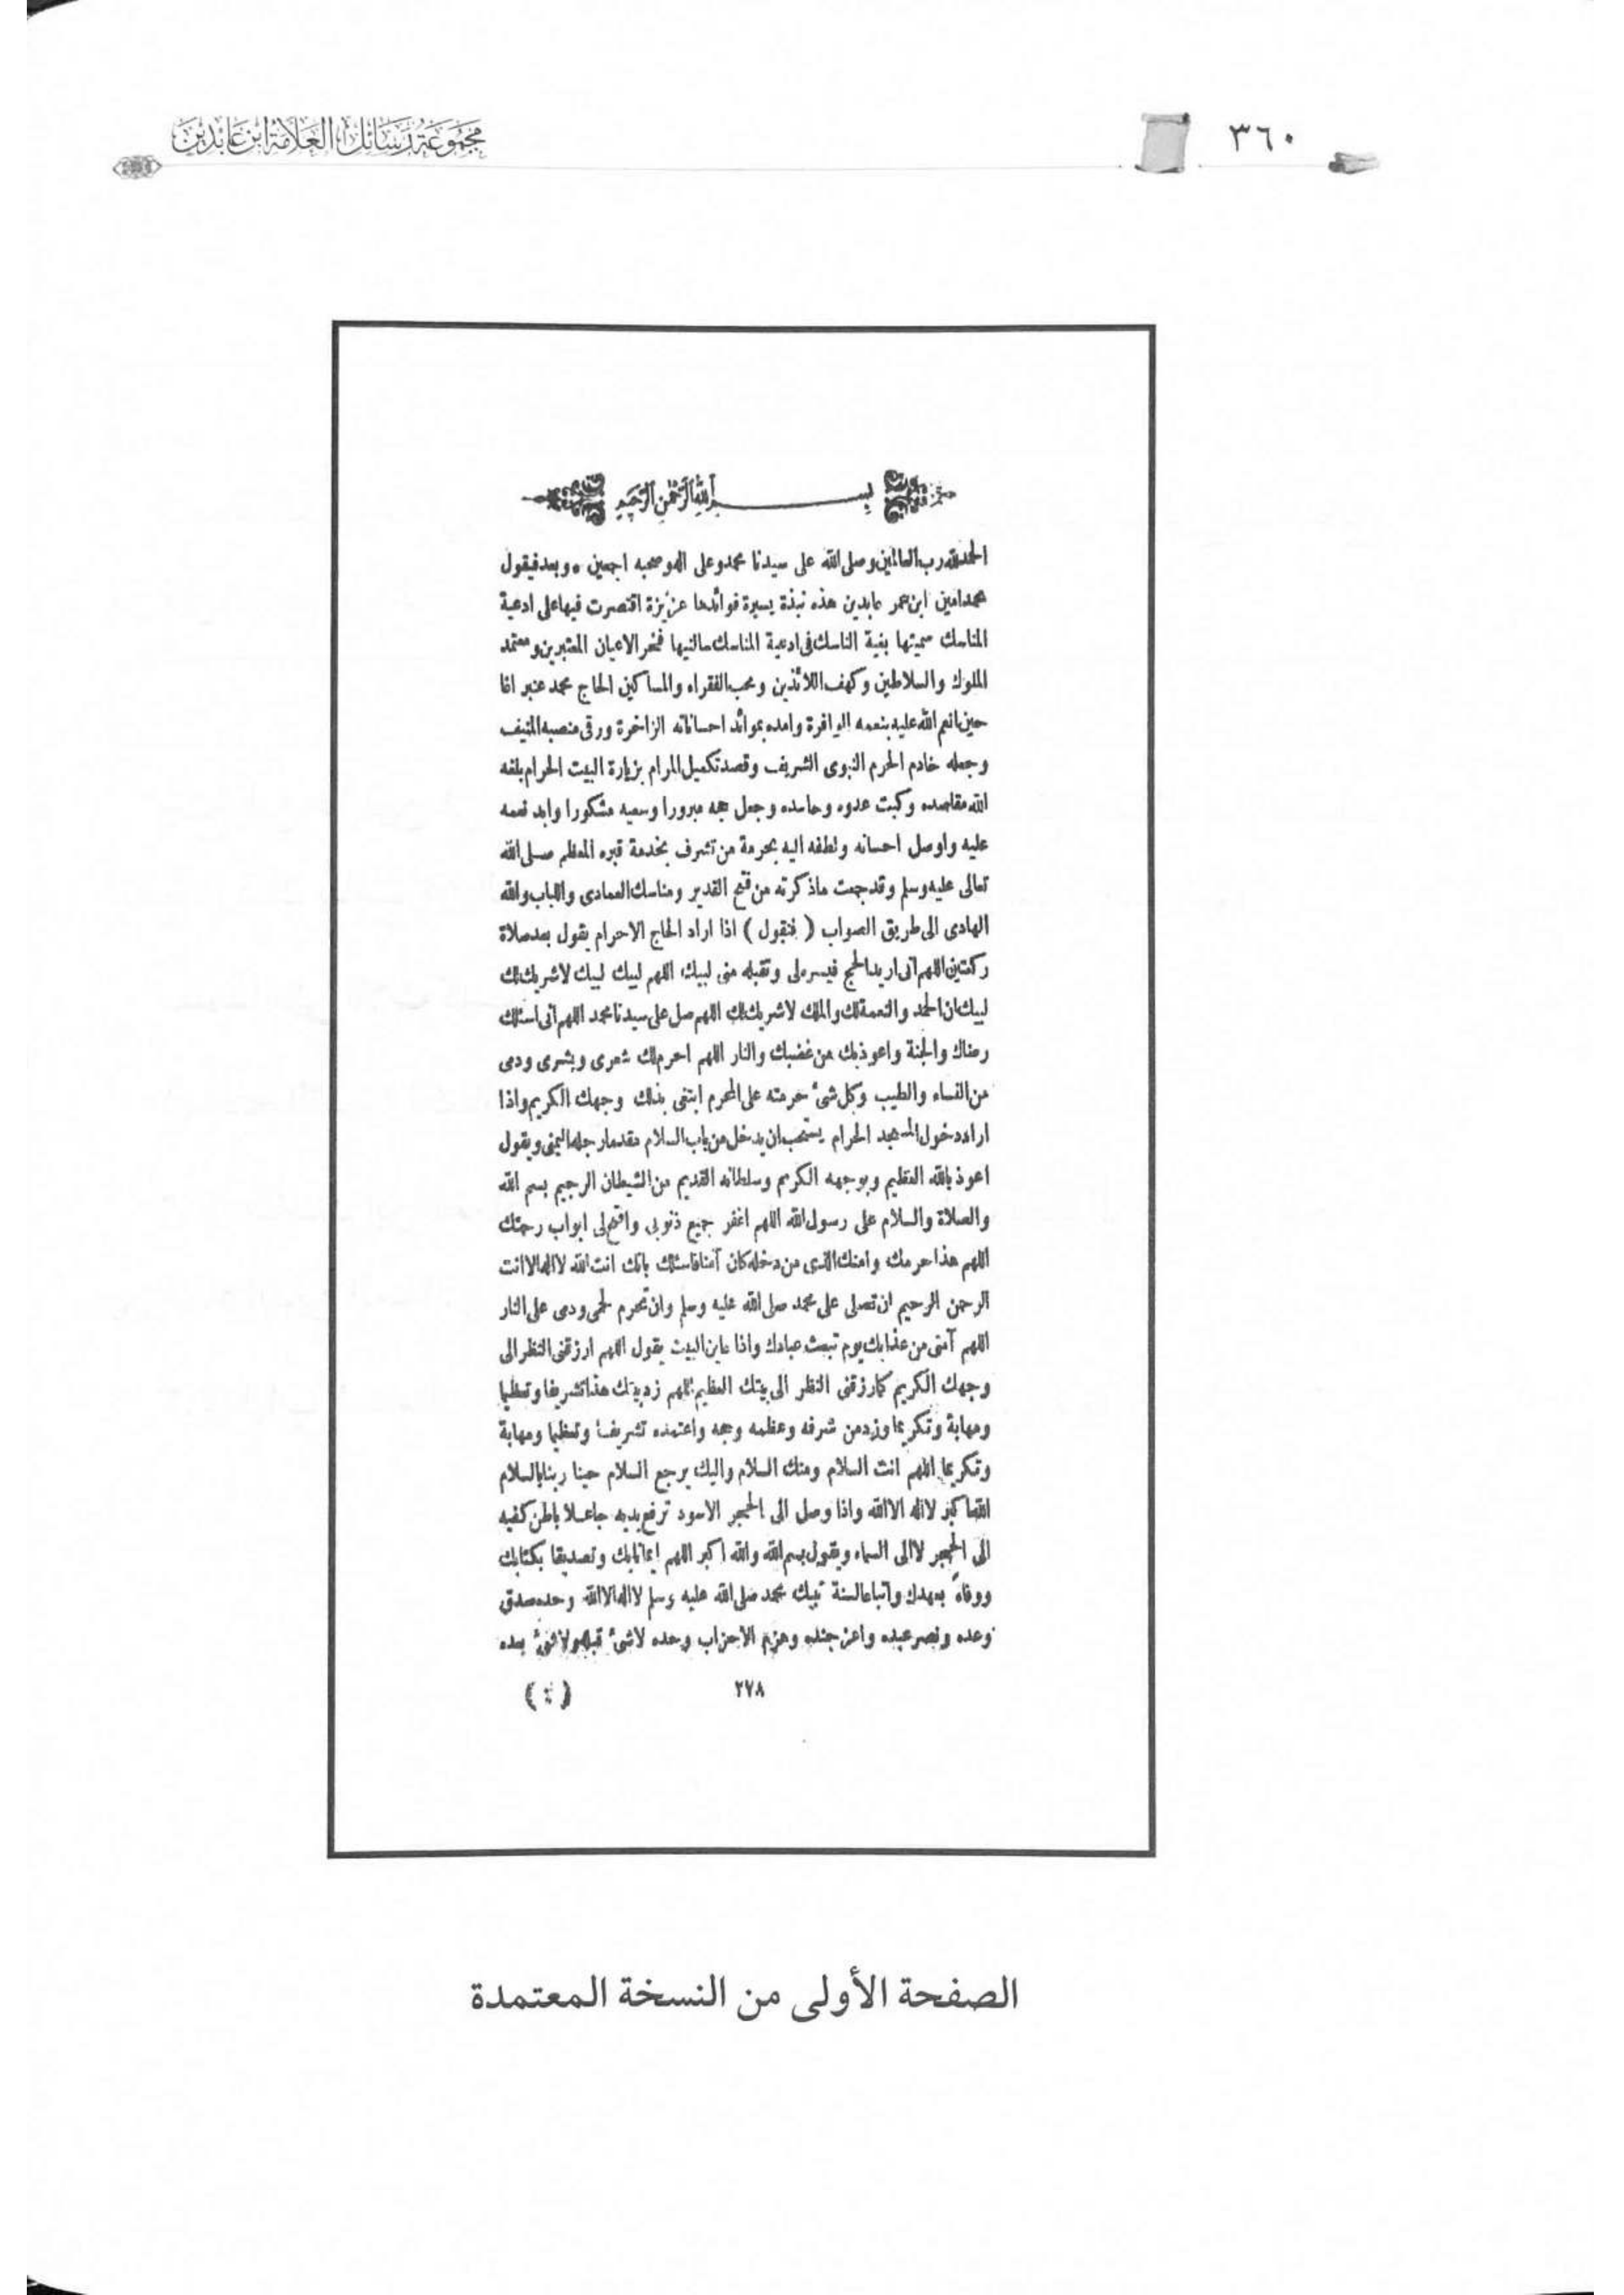 ٣٦٠
مجموعة رسائل العلامة ابن عابدين
بسم الله الرحمن الرحيم
الحمد لله رب العالمين وصلى الله على سيدنا محمد وعلى اله وصحبه اجمعين ٠ وبعد فيقول
محمد امين ابن عمر عابدين هذه نبذة يسيرة فوائدها عزيزة اقتصرت فيها على ادعية
المناسك سميتها بغية الناسك فى ادعية المناسك سألنيها فخر الاعيان المعتبرين ومعتمد
الملوك والسلاطين وكهف اللائذين ومحب الفقراء والمساكين الحاج محمد عنبر اغا
حين انعم الله عليه بنعمه الوافرة وامده بموائد احساناته الزاخرة ورقى منصبه المنيف
وجعله خادم الحرم النبوى الشريف وقصد تكميل المرام بزيارة البيت الحرام بلغه
الله مقاصده وكبت عدوه وحاسده وجعل حجه مبرورا وسعيه مشكورا وابد نعمه
عليه واوصل احسانه ولطفه اليه بحرمة من تشرف بخدمة قبره المعظم صلى الله
تعالى عليه وسلم وقد جمعت ماذكرته من فتح القدير ومناسك العمادى واللباب والله
الهادى الى طريق الصواب ( فنقول ) اذا اراد الحاج الاحرام يقول بعد صلاة
ركعتين اللهم انى اريد الحج فيسره لى وتقبله منى لبيك اللهم لبيك لبيك لاشريك لك
لبيك ان الحمد والنعمة لك والملك لاشريك لك اللهم صل على سيدنا محمد اللهم انى اسئلك
رضاك والجنة واعوذ بك من غضبك والنار اللهم احرم لك شعرى وبشرى ودمى
من النساء والطيب وكل شئ حرمته على المحرم ابتغى بذلك وجهك الكريم واذا
اراد دخول المسجد الحرام يستحب ان يدخل من باب السلام مقدما رجله اليمنى ويقول
اعوذ بالله العظيم وبوجهه الكريم وسلطانه القديم من الشيطان الرجيم بسم الله
والصلاة والسلام على رسول الله اللهم اغفر جميع ذنوبى وافتح لى ابواب رحمتك
اللهم هذا حرمك وامنك الذى من دخله كان آمنا فاسئلك بانك انت الله لا اله الا انت
الرحمن الرحيم ان تصلى على محمد صلى الله عليه وسلم وان تحرم لحمى ودمى على النار
اللهم آمنى من عذابك يوم تبعث عبادك واذا عاين البيت يقول اللهم ارزقنى النظر الى
وجهك الكريم كما رزقتنى النظر الى بيتك العظيم اللهم زد بيتك هذا تشريفا وتعظيما
ومهابة وتكريما وزد من شرفه وعظمه وحجه واعتمده تشريفا وتعظيما ومهابة
وتكريما اللهم انت السلام ومنك السلام واليك يرجع السلام حينا ربنا بالسلام
الله اكبر لا اله الا الله واذا وصل الى الحجر الاسود ترفع يديه جاعلا باطن كفيه
الى الحجر لا الى السماء ويقول بسم الله والله اكبر اللهم ايمانا بك وتصديقا بكتابك
ووفاءً بعهدك واتباعا لسنة نبيك محمد صلى الله عليه وسلم لا اله الا الله وحده صدق
وعده ونصر عبده واعز جنده وهزم الاحزاب وحده لاشئ قبله ولاشئ بعده
٢٧٨
الصفحة الأولى من النسخة المعتمدة